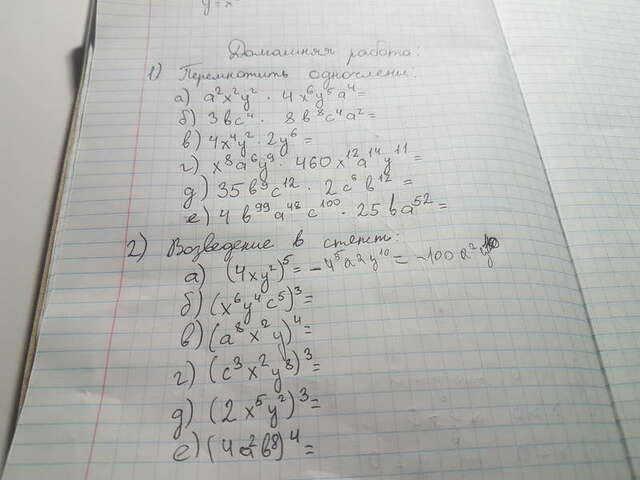 y=x
Домашняя работа:
1) Перемножить одночлени:
а) a²x²y² · 4x⁶y⁵a⁴=
б) 3вc⁴ · 8в⁸c⁴a²=
в) 4x⁴y² · 2y⁶=
г) x⁸a⁶y⁹ · 460x¹²a¹⁴y¹¹=
д) 35в⁹c¹² · 2c⁸в¹²=
е) 4в⁹⁹a⁴⁸c¹⁰⁰ · 25вa⁵²=
2) Возведение в степст:
а) (4xy²)⁵=-4⁵a2y¹⁰=-100a²y¹⁰
б) (x⁶y⁴c⁵)³=
в) (a⁸x²y)⁴=
г) (c³x²y⁸)³=
д) (2x⁵y²)³=
е) (4a²в⁸)⁴=